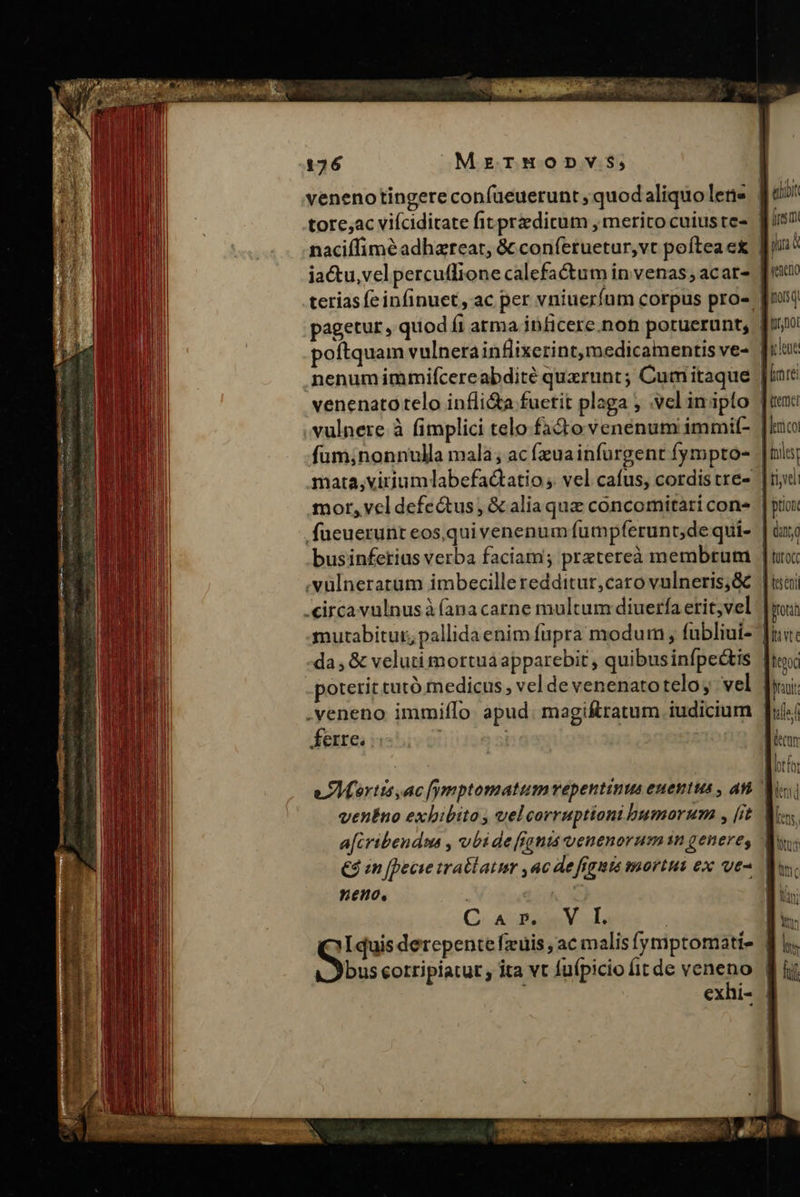 176 METHODVS,
veneno tingere consueuerunt, quod aliquo lens
tore, ac visciditate sit præditum, merito cuius te-
nacissimè adhæreat, & conseruetur, vt postea ex
iactu, vel percussione calefactum in venas, ac ar-
terias se insinuet, ac per vniuersum corpus pro-
pagetur, quod si arma inficere non potuerunt,
postquam vulnera inflixerint, medicamentis ve-
nenum immiscere abditè quærunt; Cum itaque
venenato telo inflicta fuerit plaga, vel in ipso
vulnere à simplici telo facto venenum immis-
sum, nonnulla mala, ac sæua insurgent sympto-
mata, virium labefactatio, vel casus, cordis tre-
mor, vel defectus, & alia quæ concomitari con-
sueuerunt eos, qui venenum sumpserunt, de qui-
bus inferius verba faciam; prætereà membrum
vulneratum imbecille redditur, caro vulneris, &
circa vulnus à sana carne multum diuersa erit, vel
mutabitur, pallida enim supra modum, subliui-
da, & veluti mortua apparebit, quibus inspectis
poterit tutò medicus, vel de venenato telo, vel
veneno immisso apud magistratum iudicium
ferre.
Mortis, ac symptomatum repentinus euentus, an
venêno exhibito, vel corruptioni humorum, sit
ascribendus, vbi de signis venenorum in genere,
& in specie tractatur, ac de signis mortui ex ve-
neno.
CAP. VI.
SI quis derepente sæuis, ac malis symptomati-
bus corripiatur, ita vt suspicio sit de veneno
exhi-